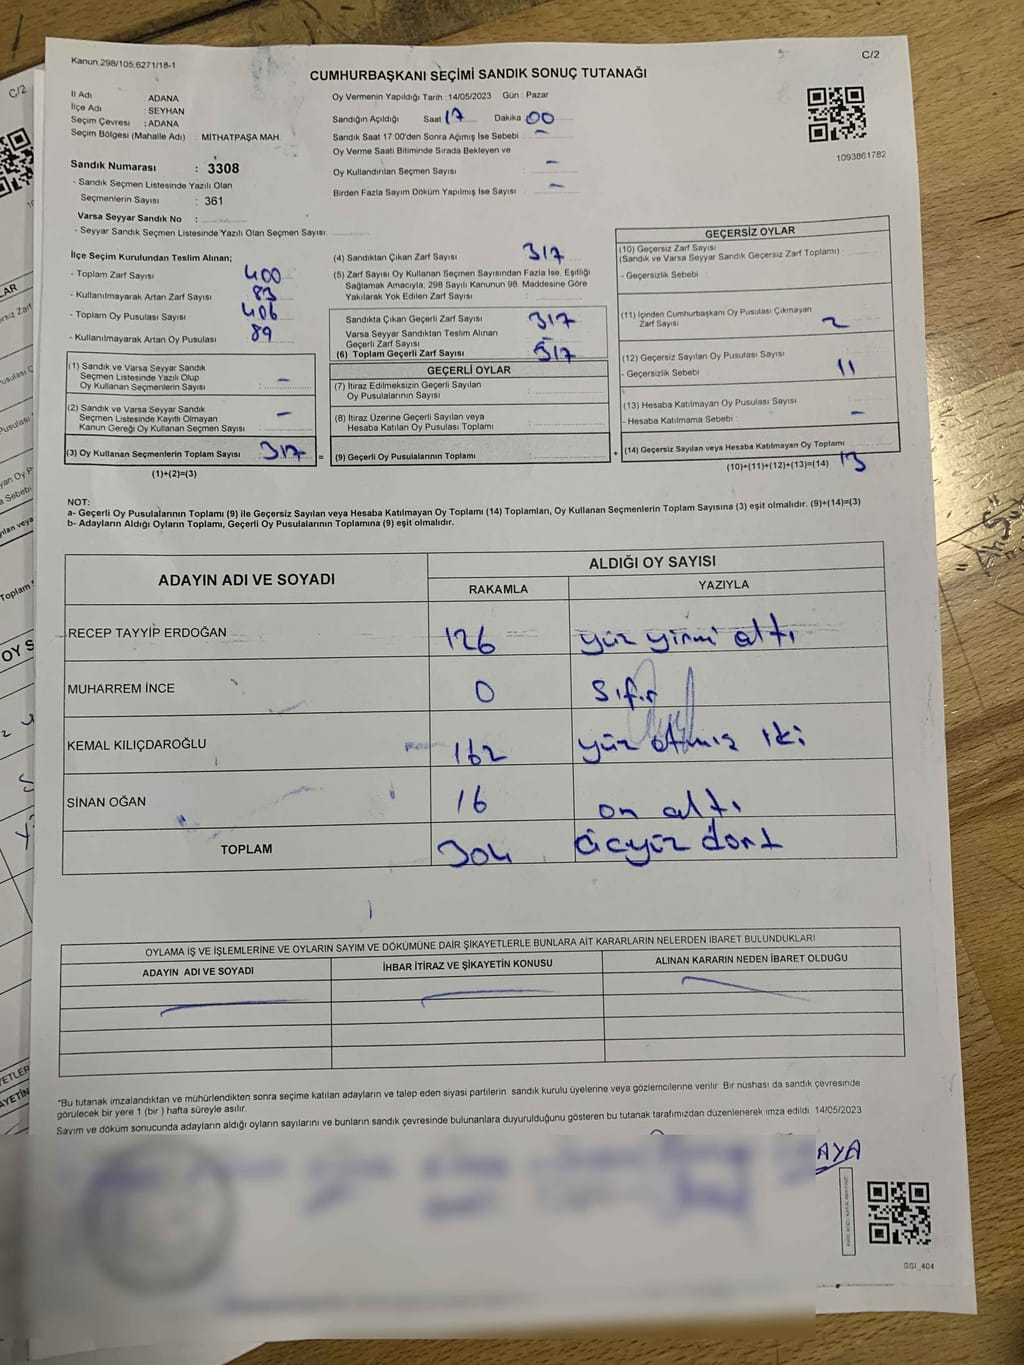 Kanun.298/105,6271/18-1
C/2
CUMHURBAŞKANI SEÇİMİ SANDIK SONUÇ TUTANAĞI
İl Adı : ADANA
İlçe Adı : SEYHAN
Seçim Çevresi : ADANA
Seçim Bölgesi (Mahalle Adı) : MİTHATPAŞA MAH.
Sandık Numarası : 3308
- Sandık Seçmen Listesinde Yazılı Olan
Seçmenlerin Sayısı : 361
Varsa Seyyar Sandık No :
- Seyyar Sandık Seçmen Listesinde Yazılı Olan Seçmen Sayısı.
Oy Vermenin Yapıldığı Tarih : 14/05/2023 Gün : Pazar
Sandığın Açıldığı Saat 17 Dakika 00
Sandık Saat 17:00'den Sonra Açımış İse Sebebi : -
Oy Verme Saati Bitiminde Sırada Bekleyen ve
Oy Kullandırılan Seçmen Sayısı : -
Birden Fazla Sayım Döküm Yapılmış İse Sayısı : -
1093861782
İlçe Seçim Kurulundan Teslim Alınan;
- Toplam Zarf Sayısı : 400
- Kullanılmayarak Artan Zarf Sayısı : 83
- Toplam Oy Pusulası Sayısı : 406
- Kullanılmayarak Artan Oy Pusulası : 89
(1) Sandık ve Varsa Seyyar Sandık
Seçmen Listesinde Yazılı Olup
Oy Kullanan Seçmenlerin Sayısı : -
(2) Sandık ve Varsa Seyyar Sandık
Seçmen Listesinde Kayıtlı Olmayan
Kanun Gereği Oy Kullanan Seçmen Sayısı : -
(3) Oy Kullanan Seçmenlerin Toplam Sayısı : 317
(1)+(2)=(3)
=
(4) Sandıktan Çıkan Zarf Sayısı : 317
(5) Zarf Sayısı Oy Kullanan Seçmen Sayısından Fazla İse, Eşitliği
Sağlamak Amacıyla; 298 Sayılı Kanunun 98. Maddesine Göre
Yakılarak Yok Edilen Zarf Sayısı :
Sandıkta Çıkan Geçerli Zarf Sayısı : 317
Varsa Seyyar Sandıktan Teslim Alınan
Geçerli Zarf Sayısı :
(6) Toplam Geçerli Zarf Sayısı : 317
GEÇERLİ OYLAR
(7) İtiraz Edilmeksizin Geçerli Sayılan
Oy Pusulalarının Sayısı :
(8) İtiraz Üzerine Geçerli Sayılan veya
Hesaba Katılan Oy Pusulası Toplamı :
(9) Geçerli Oy Pusulalarının Toplamı :
+
GEÇERSİZ OYLAR
(10) Geçersiz Zarf Sayısı
(Sandık ve Varsa Seyyar Sandık Geçersiz Zarf Toplamı)
- Geçersizlik Sebebi :
(11) İçinden Cumhurbaşkanı Oy Pusulası Çıkmayan
Zarf Sayısı : 2
(12) Geçersiz Sayılan Oy Pusulası Sayısı :
- Geçersizlik Sebebi : 11
(13) Hesaba Katılmayan Oy Pusulası Sayısı :
- Hesaba Katılmama Sebebi : -
(14) Geçersiz Sayılan veya Hesaba Katılmayan Oy Toplamı
(10)+(11)+(12)+(13)=(14) 13
NOT:
a- Geçerli Oy Pusulalarının Toplamı (9) ile Geçersiz Sayılan veya Hesaba Katılmayan Oy Toplamı (14) Toplamları, Oy Kullanan Seçmenlerin Toplam Sayısına (3) eşit olmalıdır. (9)+(14)=(3)
b- Adayların Aldığı Oyların Toplamı, Geçerli Oy Pusulalarının Toplamına (9) eşit olmalıdır.
ADAYIN ADI VE SOYADI
ALDIĞI OY SAYISI
RAKAMLA YAZIYLA
RECEP TAYYİP ERDOĞAN 126 yüz yirmi altı
MUHARREM İNCE 0 Sıfır
KEMAL KILIÇDAROĞLU 162 yüz atmış iki
SİNAN OĞAN 16 on altı
TOPLAM 304 üçyüz dört
OYLAMA İŞ VE İŞLEMLERİNE VE OYLARIN SAYIM VE DÖKÜMÜNE DAİR ŞİKAYETLERLE BUNLARA AİT KARARLARIN NELERDEN İBARET BULUNDUKLARI
ADAYIN ADI VE SOYADI İHBAR İTİRAZ VE ŞİKAYETİN KONUSU ALINAN KARARIN NEDEN İBARET OLDUĞU
*Bu tutanak imzalandıktan ve mühürlendikten sonra seçime katılan adayların ve talep eden siyasi partilerin sandık kurulu üyelerine veya gözlemcilerine verilir. Bir nüshası da sandık çevresinde
görülecek bir yere 1 (bir) hafta süreyle asılır.
Sayım ve döküm sonucunda adayların aldığı oyların sayılarını ve bunların sandık çevresinde bulunanlara duyurulduğunu gösteren bu tutanak tarafımızdan düzenlenerek imza edildi. 14/05/2023
AYA
SSI_404